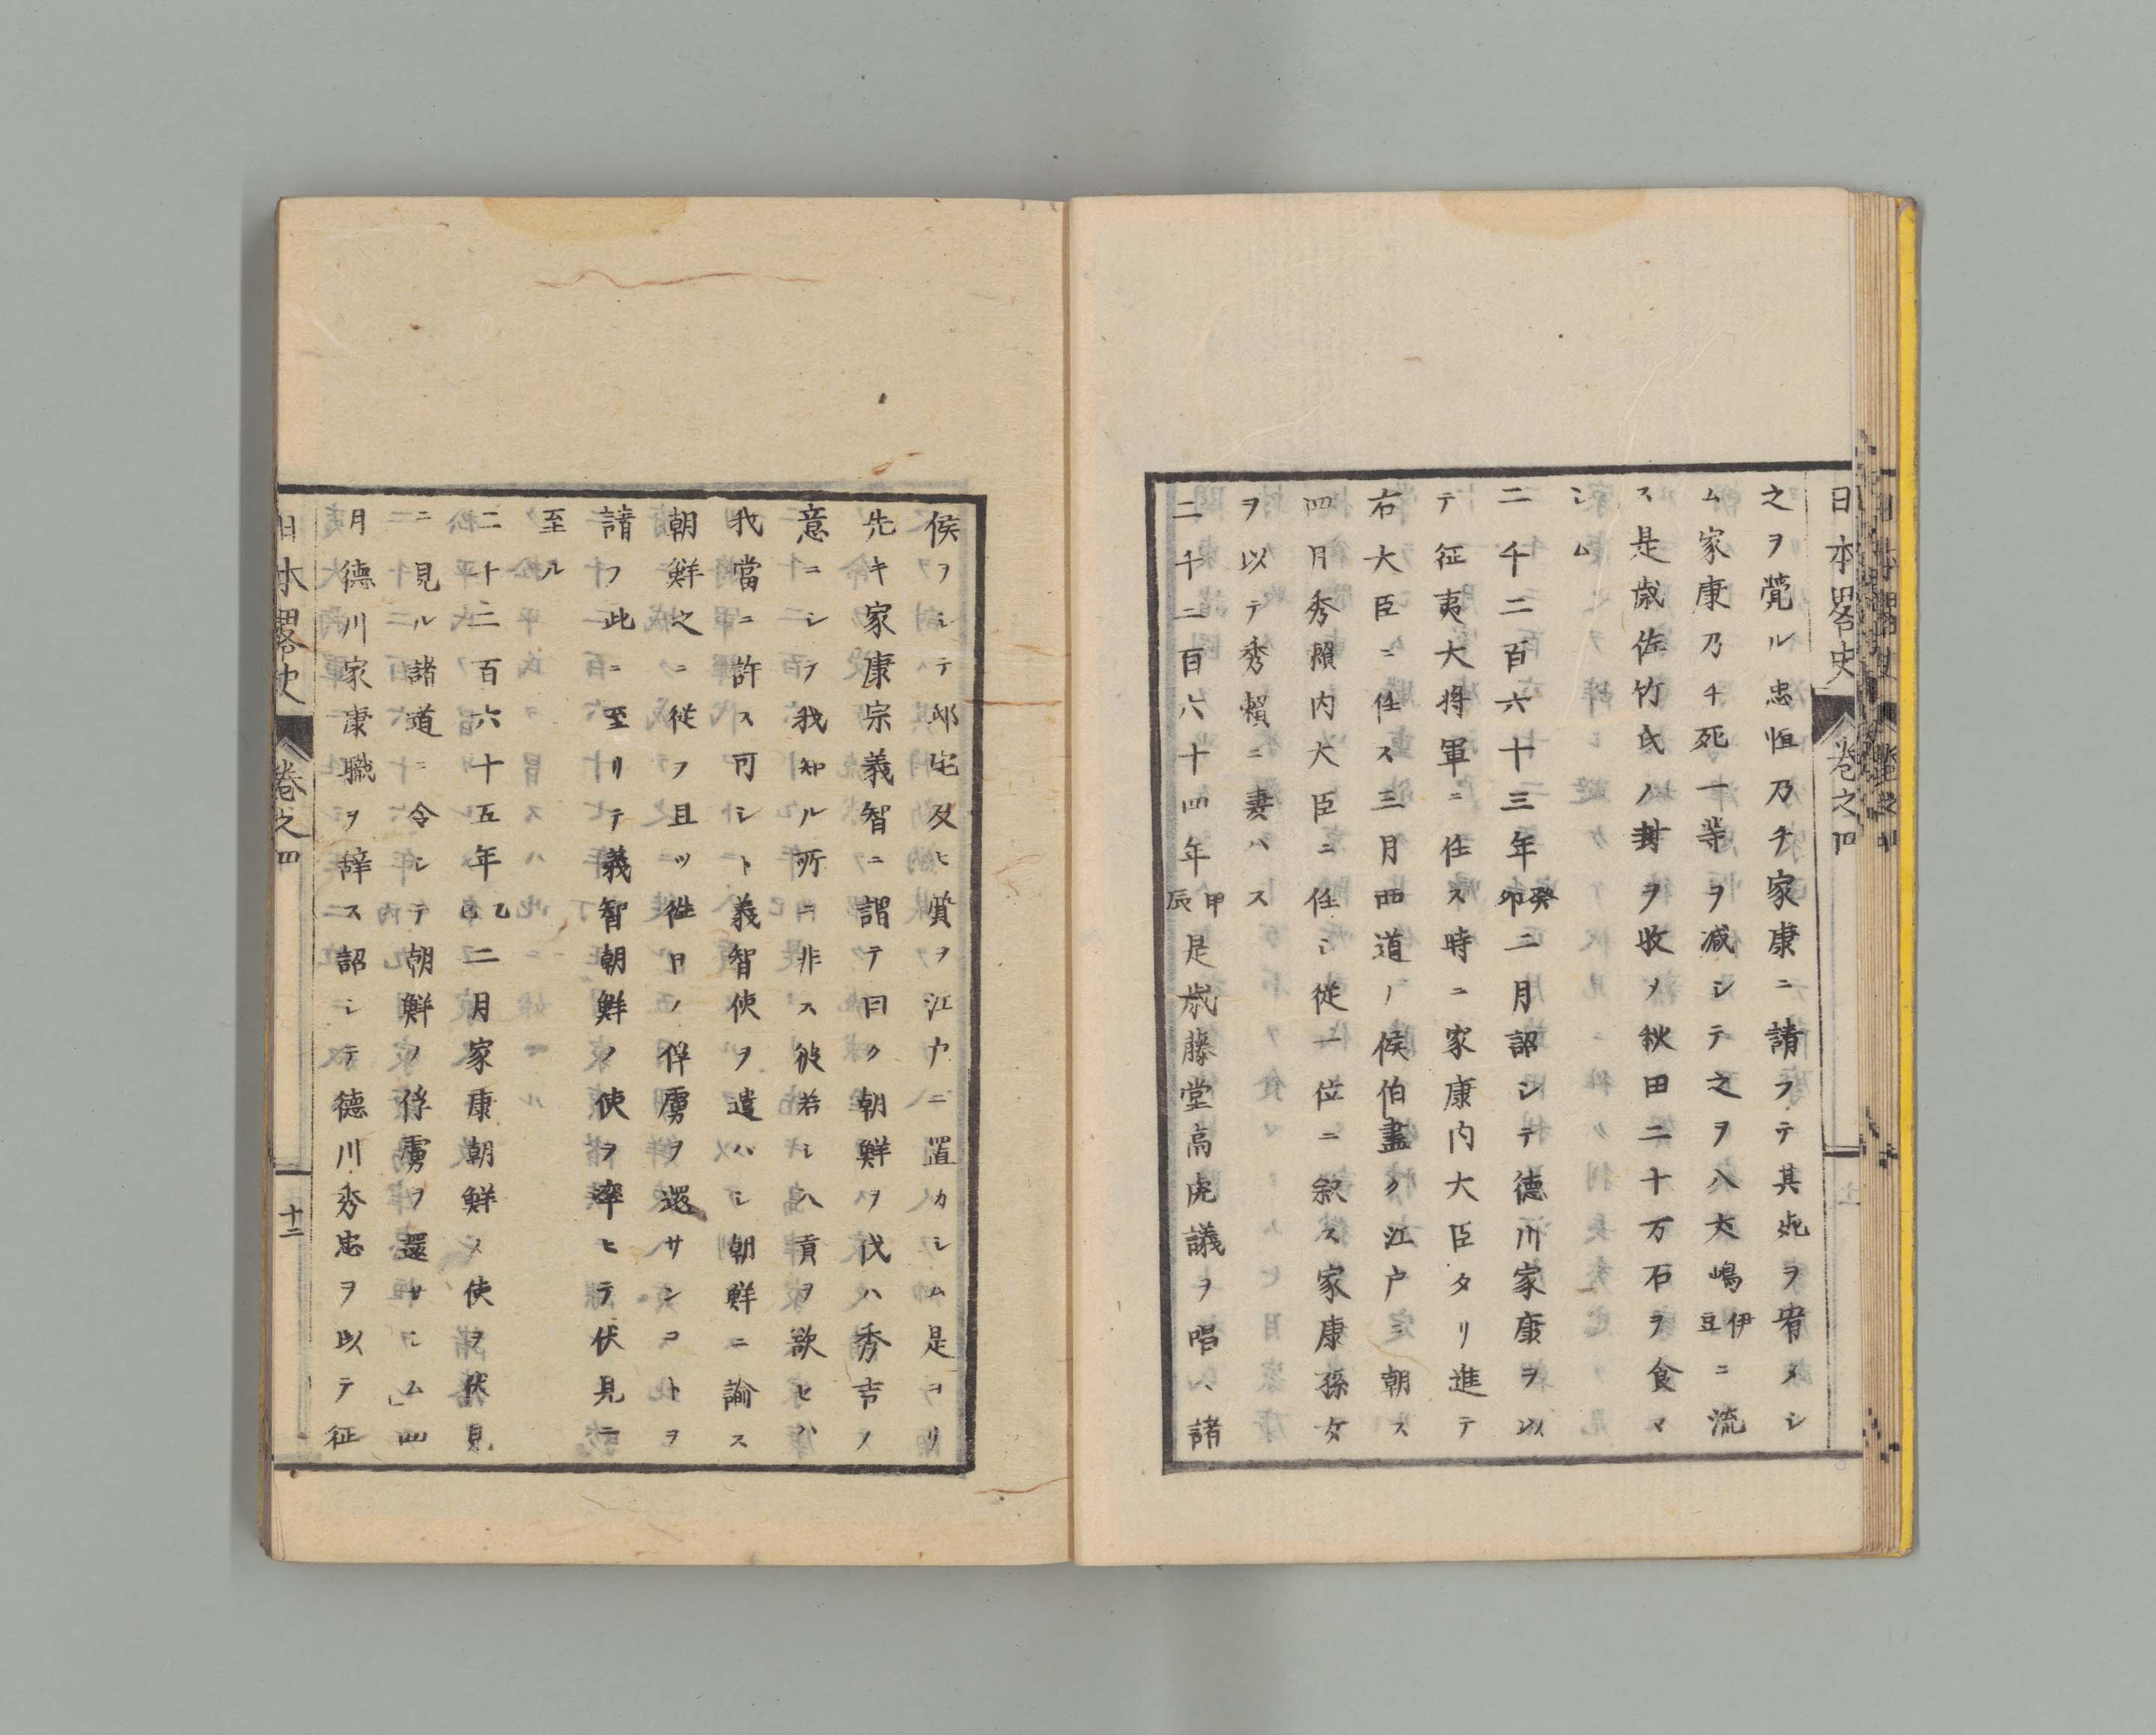 日本畧史 卷之四
之ヲ覺ル忠恒乃チ家康ニ請フテ其死ヲ宥メシ
ム家康乃チ死一等ヲ减シテ之ヲ八丈嶋伊豆ニ流
ス是歲佐竹氏ノ封ヲ收メ秋田二十万石ヲ食マ
シム
二千二百六十三年癸卯二月詔シテ德川家康ヲ以
テ征夷大将軍ニ任ス時ニ家康内大臣タリ進テ
右大臣ニ任ス三月西道ノ侯伯盡ク江戸ニ朝ス
四月秀頼内大臣ニ任シ從一位ニ叙ス家康孫女
ヲ以テ秀頼ニ妻ハス
二千二百六十四年甲辰是歲藤堂高虎議ヲ唱ヘ諸
侯ヲシテ邸宅及ヒ質ヲ江戸ニ置カシム是ヨリ
先キ家康宗義智ニ謂テ曰ク朝鮮ヲ伐ハ秀吉ノ
意ニシテ我知ル所ニ非ス彼若シ貢ヲ欲セハ
我當ニ許ス可シト義智使ヲ遣ハシ朝鮮ニ諭ス
朝鮮之ニ從ヲ且ツ徃日ノ俘虜ヲ還サンコトヲ
請フ此ニ至リテ義智朝鮮ノ使ヲ率ヒテ伏見ニ
至ル
二千二百六十五年乙巳二月家康朝鮮ノ使ヲ伏見
ニ見ル諸道ニ令シテ朝鮮ノ俘虜ヲ還サシム四
月德川家康職ヲ辞ス詔シテ德川秀忠ヲ以テ征
日本畧史 卷之四 十二